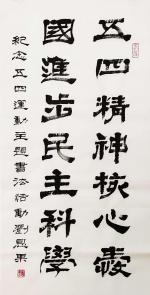 五四精神核心爱
國進步民主科學
紀念五四運動主題書法活動劉恩果